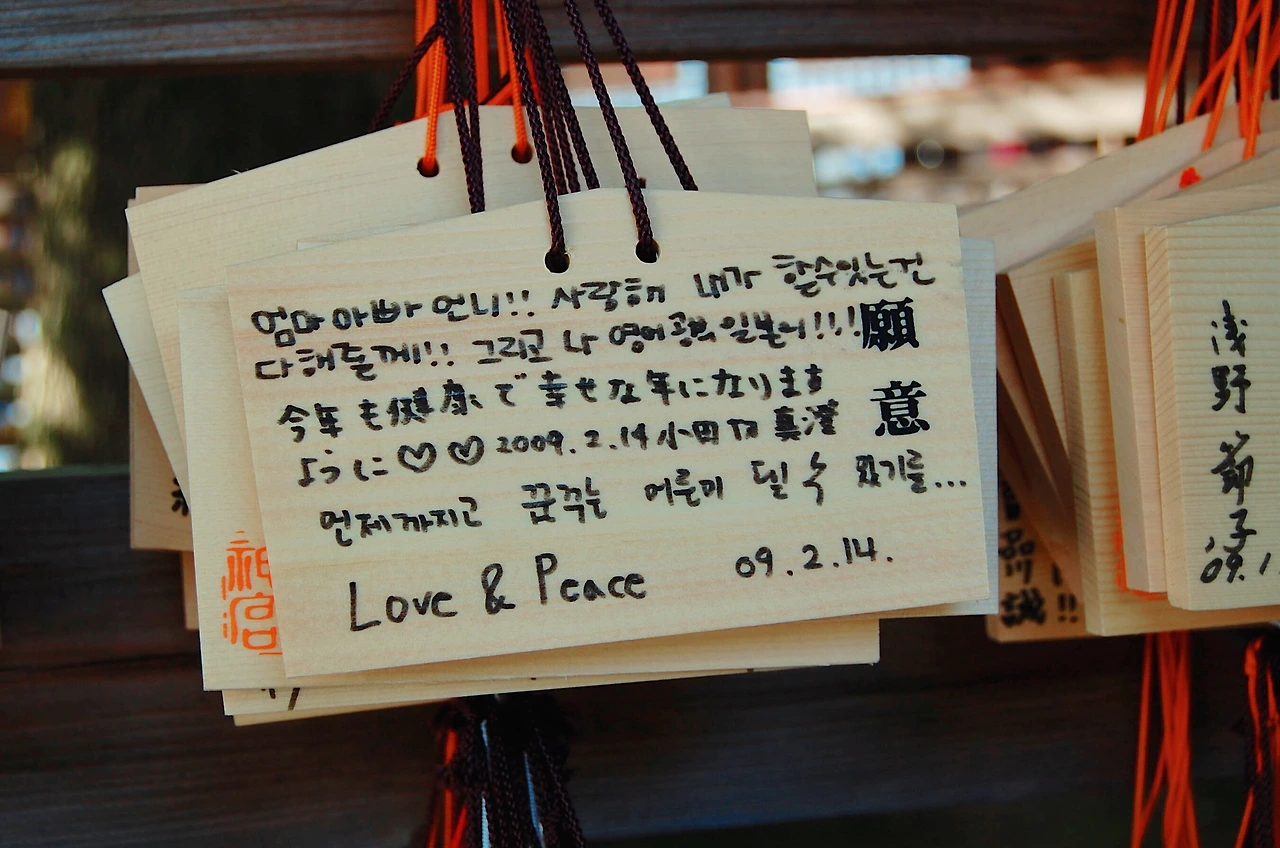 엄마 아빠 언니!! 사랑해 내가 할수있는건
다해줄께!! 그리고 나 영어 일본어!!!
願意
今年も健康で幸せな年になります
ように♡♡ 2009.2.14 小田切 真澄
언제까지고 꿈꾸는 어른이 될 수 있기를...
Love & Peace 09.2.14.
神宮
浅野 節子
'09.1
品川
誠 !!